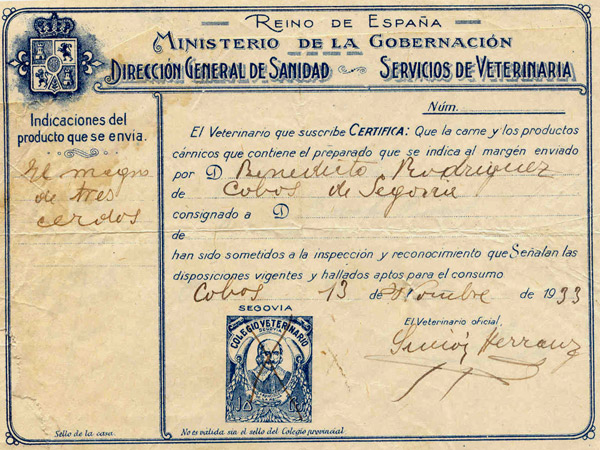 REINO DE ESPAÑA
MINISTERIO DE LA GOBERNACIÓN
DIRECCIÓN GENERAL DE SANIDAD SERVICIOS DE VETERINARIA
Núm.
Indicaciones del
producto que se envía.
El magro
de tres
cerdos
El Veterinario que suscribe CERTIFICA: Que la carne y los productos
cárnicos que contiene el preparado que se indica al margén enviado
por D Benedicto Rodriguez
de Cobos de Segovia
consignado a D
de
han sido sometidos a la inspección y reconocimiento que Señalan las
disposiciones vigentes y hallados aptos para el consumo
Cobos 13 de de 1933
SEGOVIA
COLEGIO VETERINARIO
SEGOVIA
El Veterinario oficial,
Simón Herranz
Sello de la casa.
No es válida sin el sello del Colegio provincial.